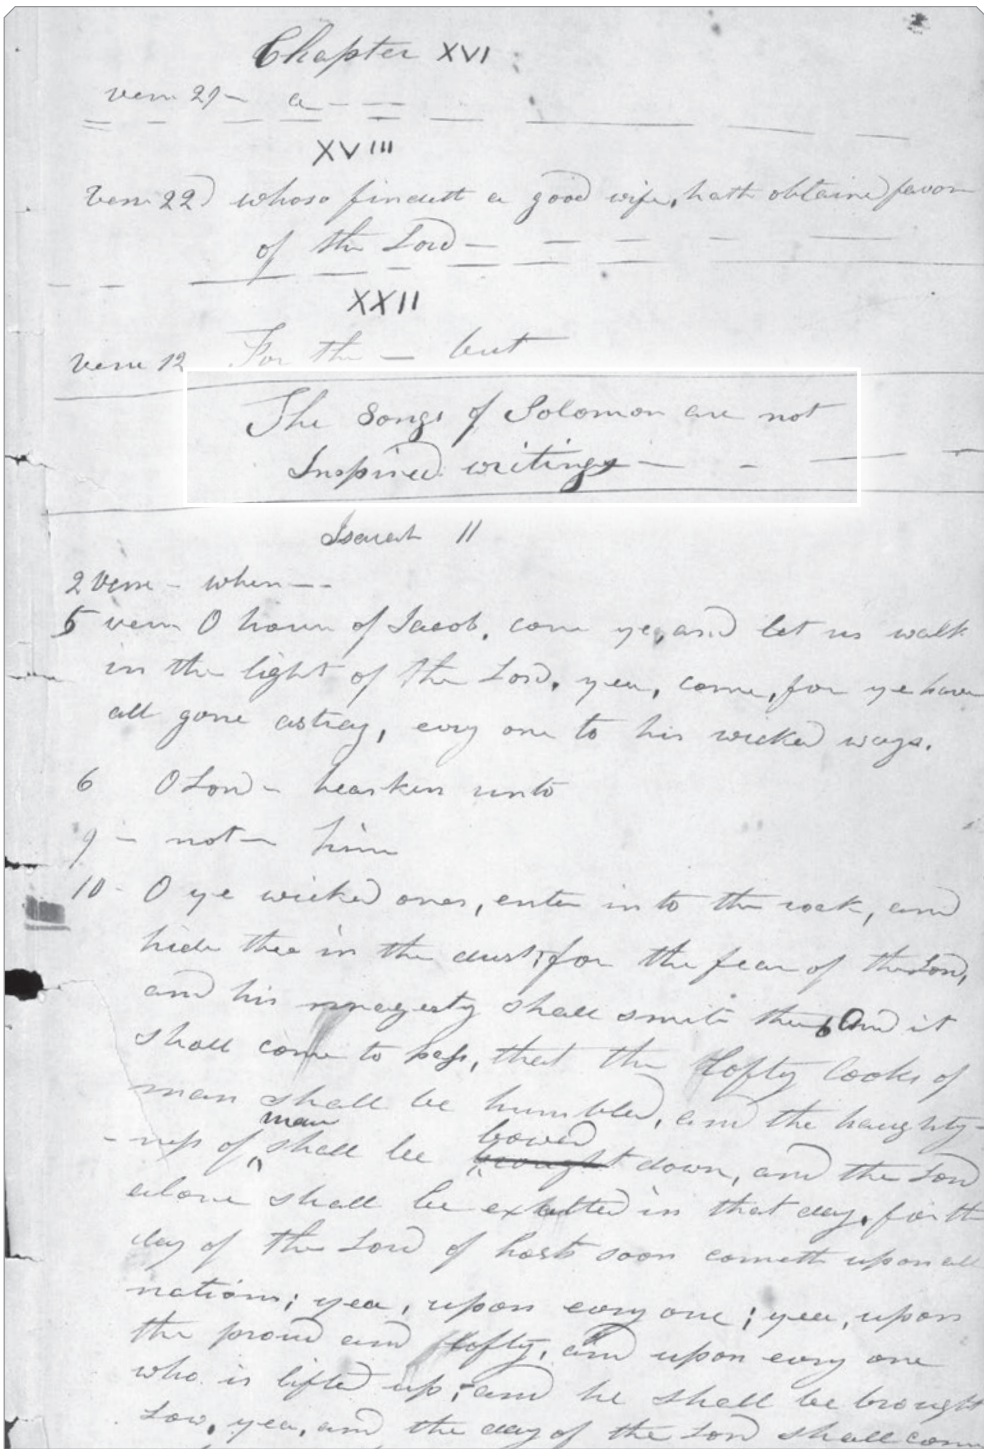 Chapter XVI
vers. 29 — a — — —
XVIII
Vers. 22) whoso findeth a good wife, hath obtained favor
of the Lord —
XXII
Verse 12 For the — but
The Songs of Solomon are not
Inspired writings —
Isaiah II
2 Verse — when — —
5 vers. O house of Jacob, come ye, and let us walk
in the light of the Lord, yea, come, for ye have
all gone astray, evry one to his wicked ways.
6 O Lord — hearken unto
9 — not — him
10 - O ye wicked ones, enter into the rock, and
hide thee in the dust; for the fear of the Lord,
and his magesty shall smite thee, And it
shall come to pass, that the lofty looks of
man shall be humbled, and the haughty-
-ness of man shall be bowed down, and the Lord
alone shall be exalted in that day, for the
day of the Lord of hosts soon cometh upon all
nations; yea, upon evry one; yea, upon
the proud and lofty, and upon evry one
who is lifted up; and he shall be brought
Low, yea, and the day of the Lord shall come